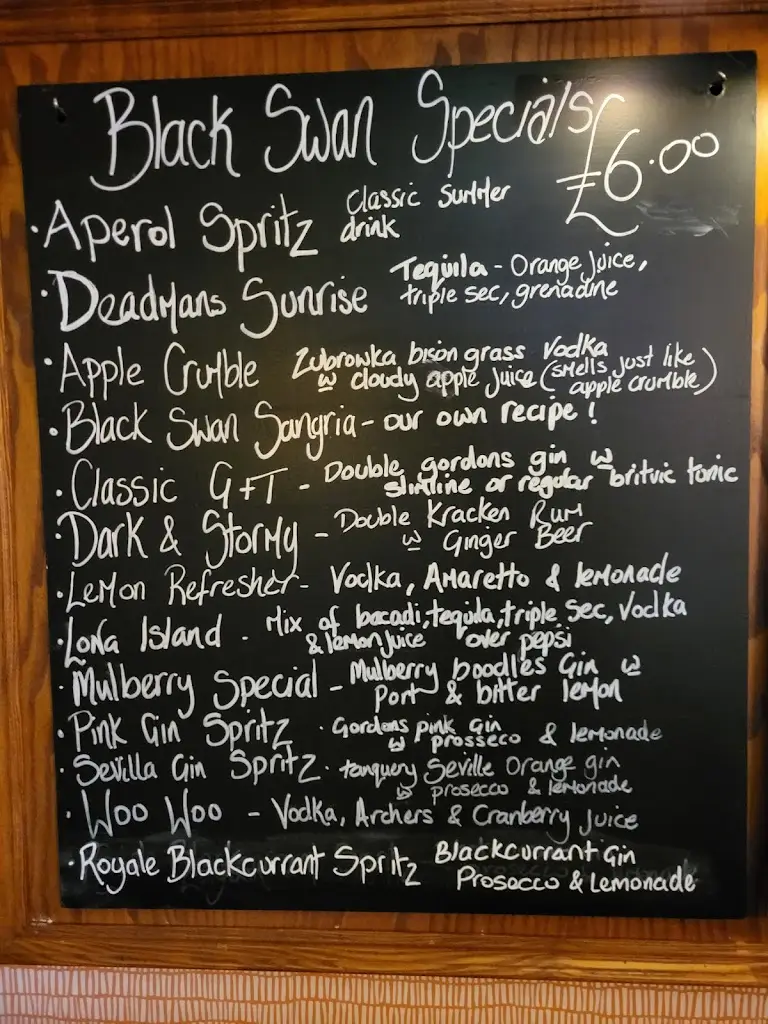 Black Swan Specials £6.00
• Aperol Spritz classic summer drink
• Deadmans Sunrise Tequila - Orange juice, triple sec, grenadine
• Apple Crumble Zubrowka bison grass vodka w cloudy apple juice (smells just like apple crumble)
• Black Swan Sangria - our own recipe!
• Classic G+T - Double gordons gin w slimline or regular britvic tonic
• Dark & Stormy - Double Kracken Rum w Ginger Beer
• Lemon Refresher - Vodka, Amaretto & lemonade
• Long Island - Mix of bacadi, tequila, triple sec, vodka & lemon juice over pepsi
• Mulberry Special - Mulberry boodles Gin w Port & bitter lemon
• Pink Gin Spritz • Gordons pink gin w prosseco & lemonade
• Sevilla Gin Spritz • tanquery Seville Orange gin w prosecco & lemonade
• Woo Woo - Vodka, Archers & Cranberry juice
• Royale Blackcurrant Spritz Blackcurrant Gin Prosecco & Lemonade